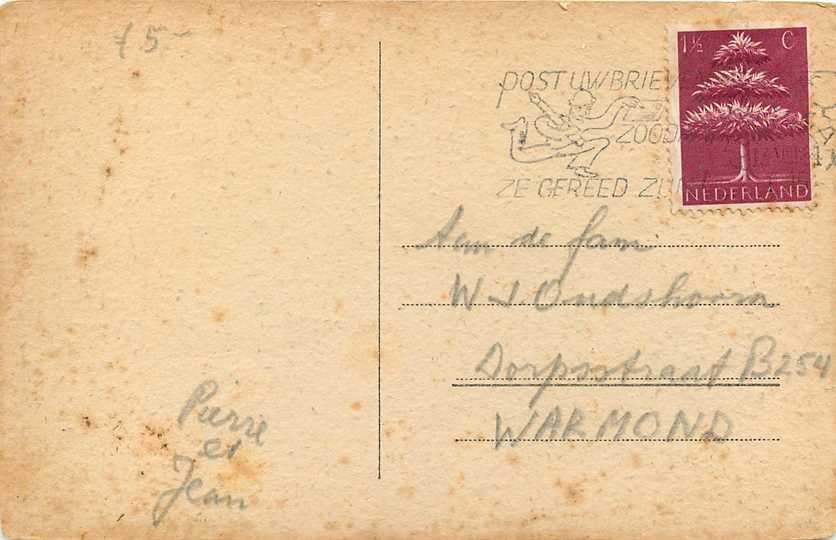 15-
1½ C
POST UW BRIEVEN
ZOODRA
ZE GEREED ZIJN
NEDERLAND
Aan de fam
W J Oudshoorn
Dorpsstraat B254
WARMOND
Pierre
et
Jean